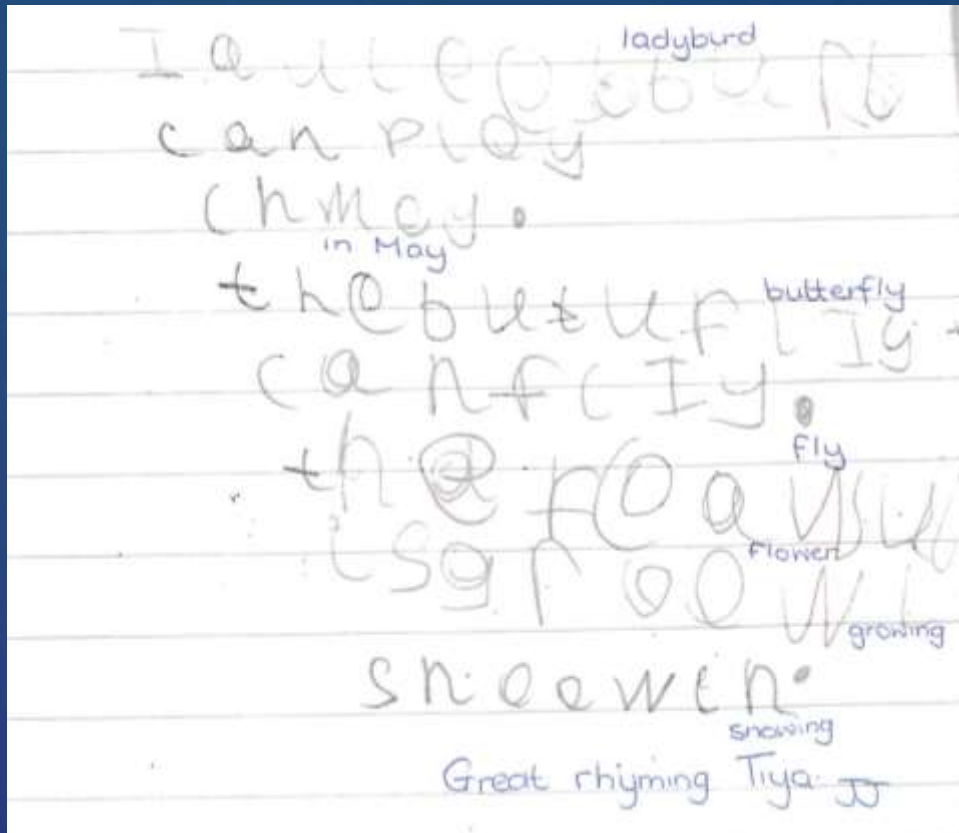 ladyburd
can play
(hmay.
in May
the butufl Iy
butterfly
can fl Iy.
fly
the
flower
is groow
growing
snoowin.
snowing
Great rhyming Tiya JJ